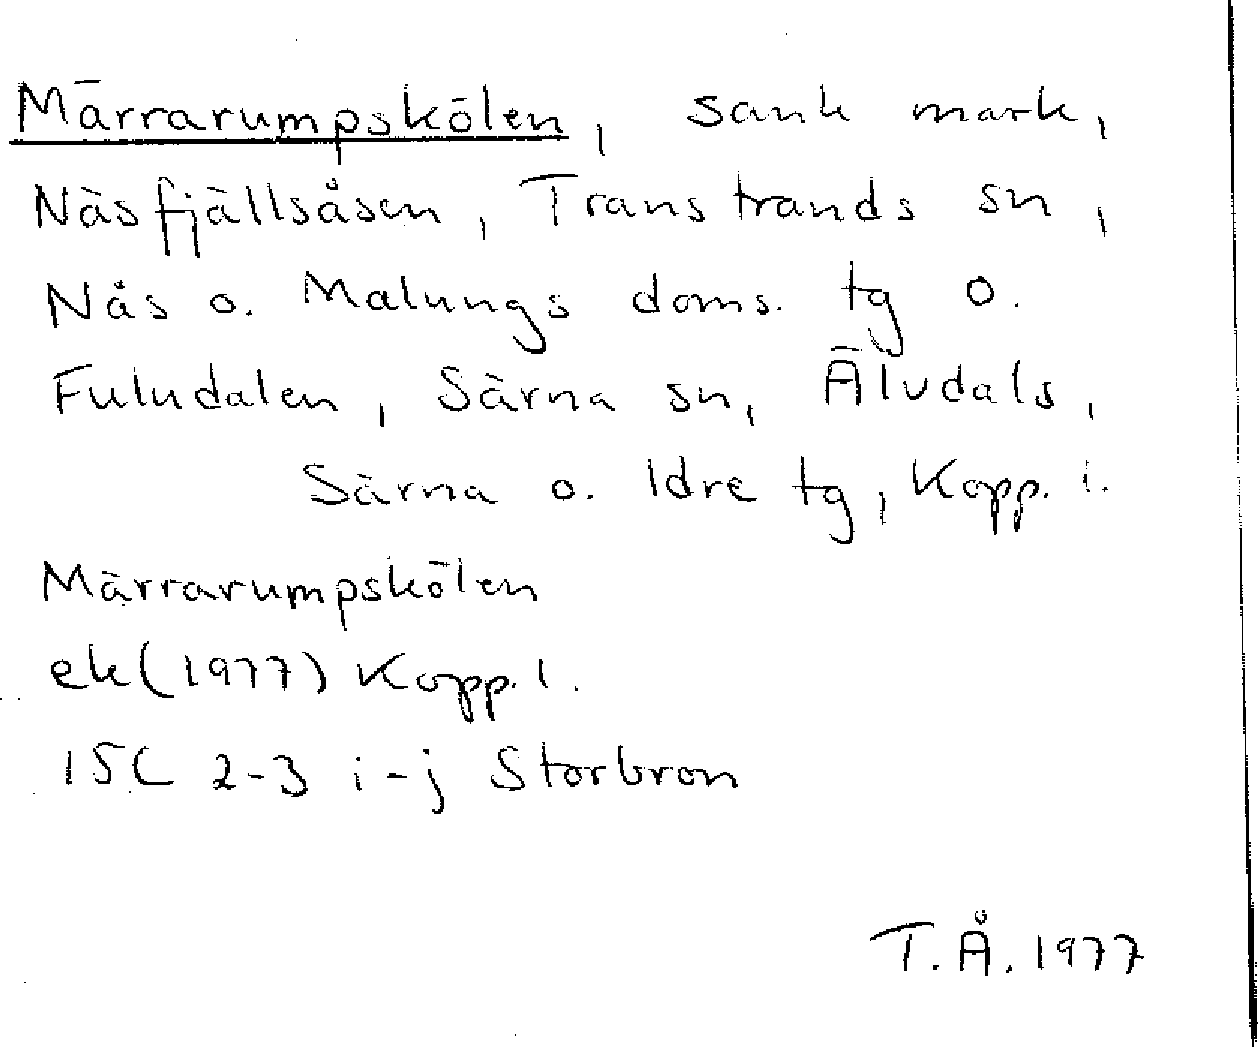 Märrarumpskölen, sank mark,
Näsfjällsåsen, Transtrands sn,
Nås o. Malungs doms. tg o.
Fuludalen, Särna sn, Älvdals,
Särna o. Idre tg, Kopp. l.
Märrarumpskölen
ek (1977) Kopp. l.
15C 2-3 i-j Storbron
T.Å. 1977